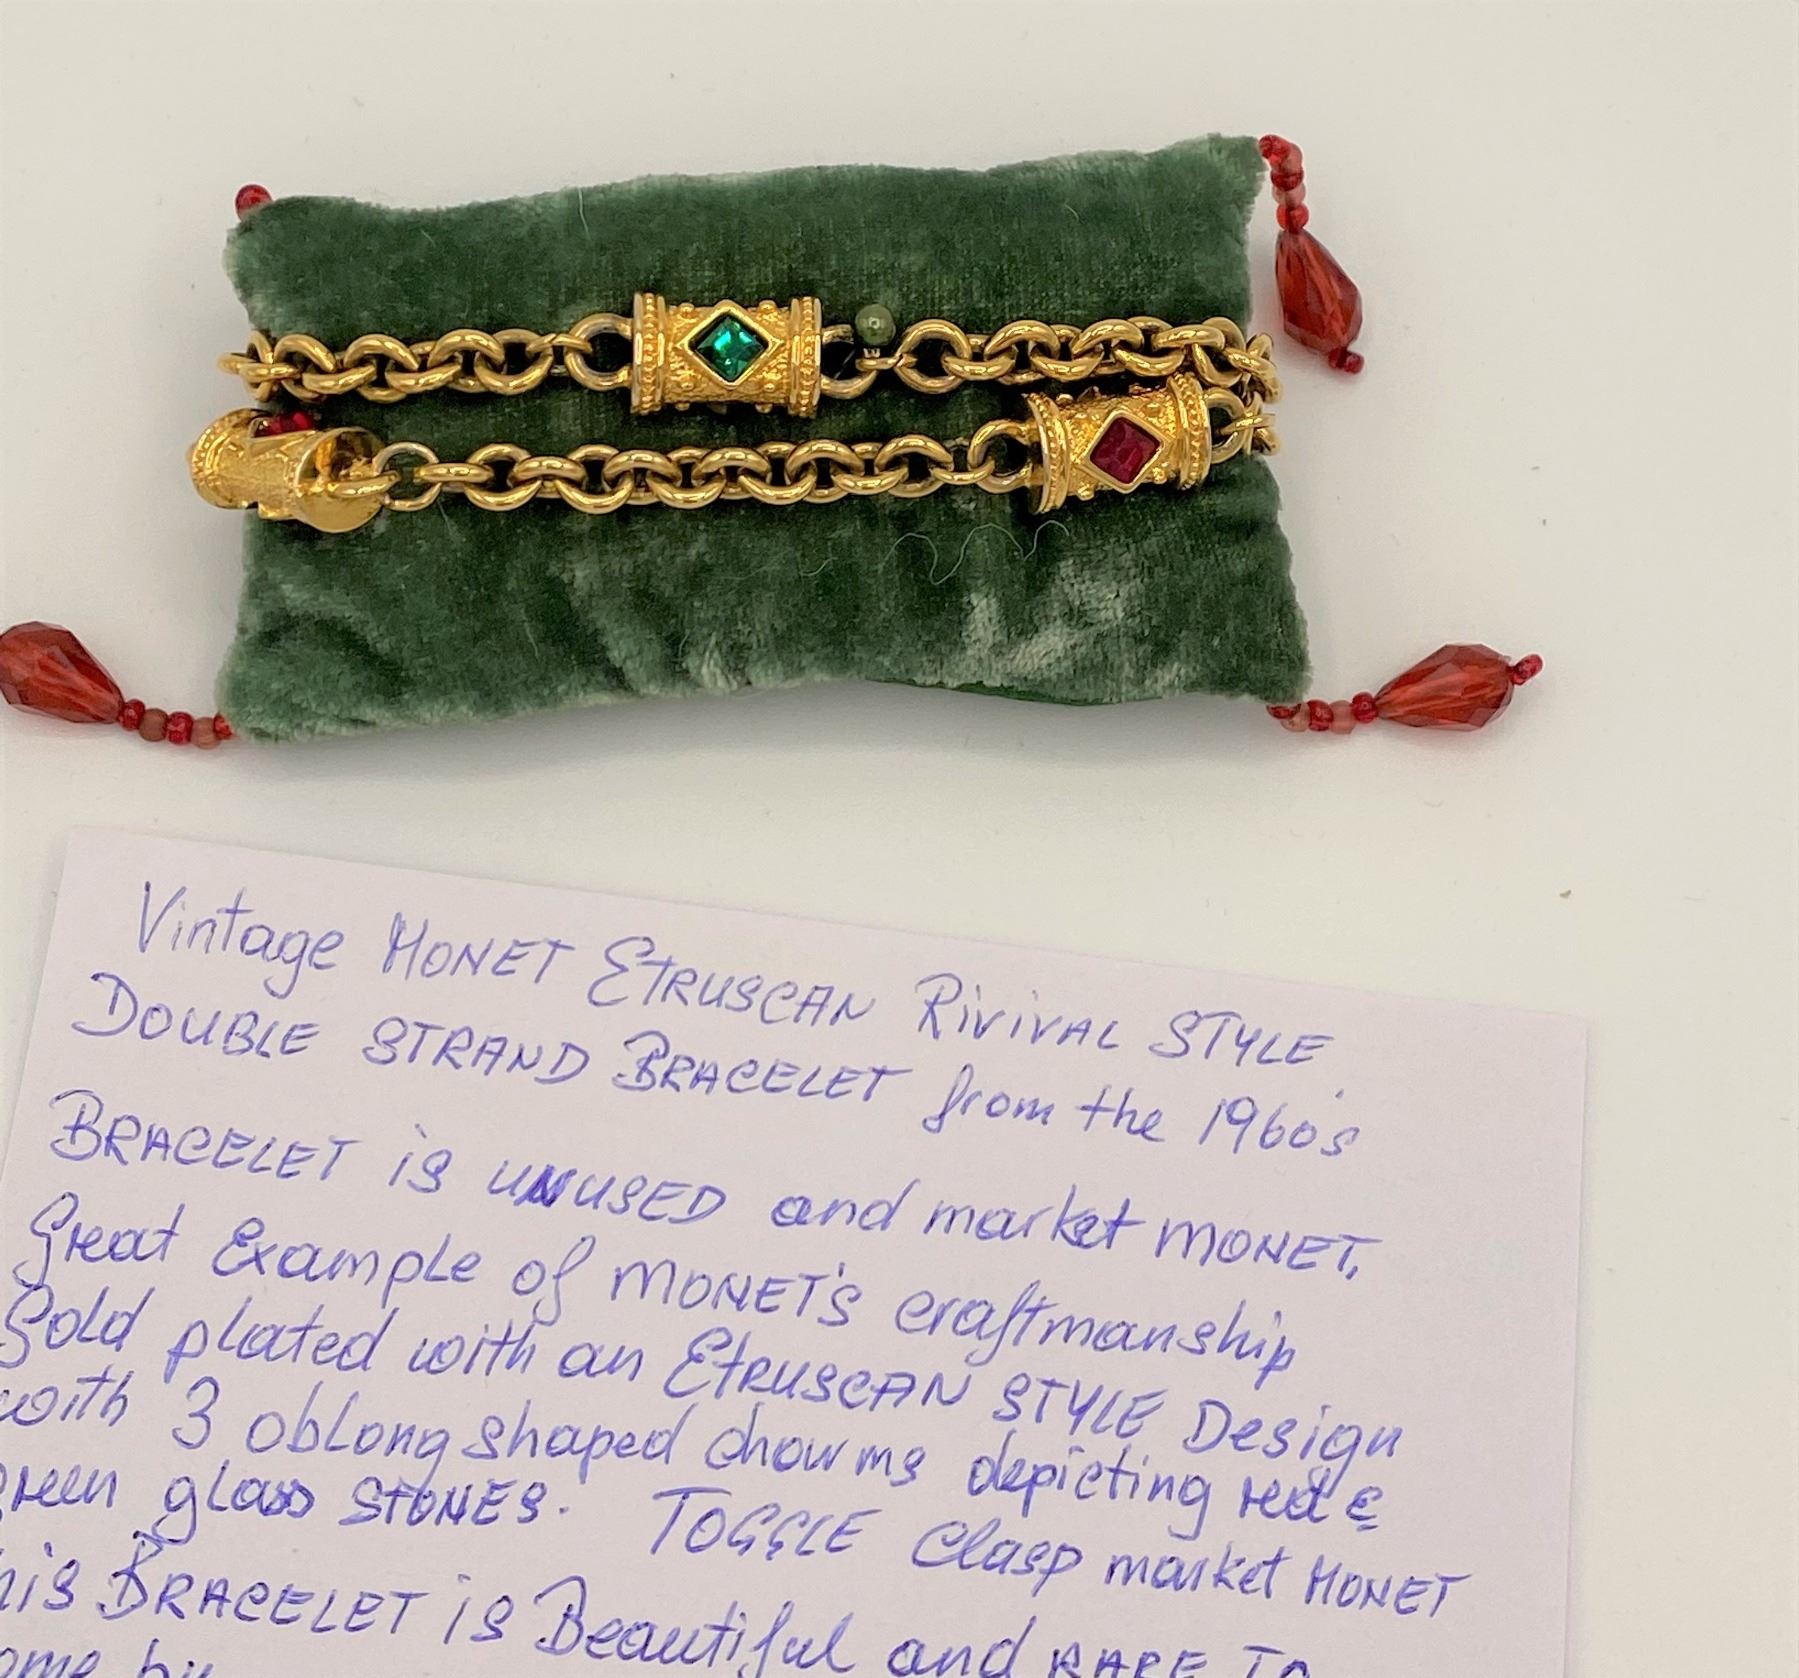 Vintage MONET ETRUSCAN RiViVAL STYLE
DOUBLE STRAND BRACELET from the 1960's
BRACELET is UNUSED and market MONET.
Great Example of MONET's craftmanship
Gold plated with an ETRUSCAN STYLE Design
with 3 obLong shaped charms depicting red &
green glass STONES. TOGGLE Clasp market MONET
his BRACELET is Beautiful and RARE To
ome by